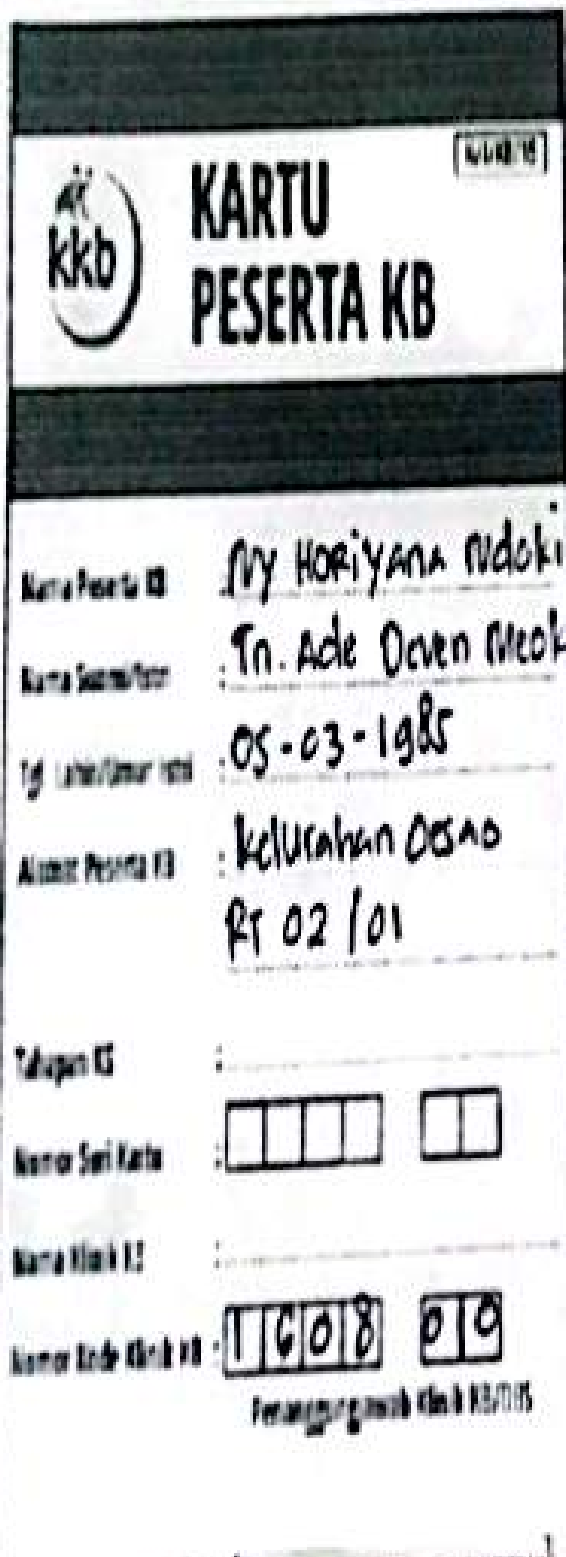 kkb
KARTU
PESERTA KB
Nama Peserta KB : Ny Horiyana Ndoki
Nama Suami/Istri : Tn. Ade Deven Meok
Tgl. Lahir/Umur Istri : 05-03-1985
Alamat Peserta KB : Kelurahan Oesao
RT 02/01
Tahapan KS :
Nomor Seri Kartu :
Nama Klinik KB :
Nomor Kode Klinik KB : 1608 00
Penanggung jawab Klinik KB/
1